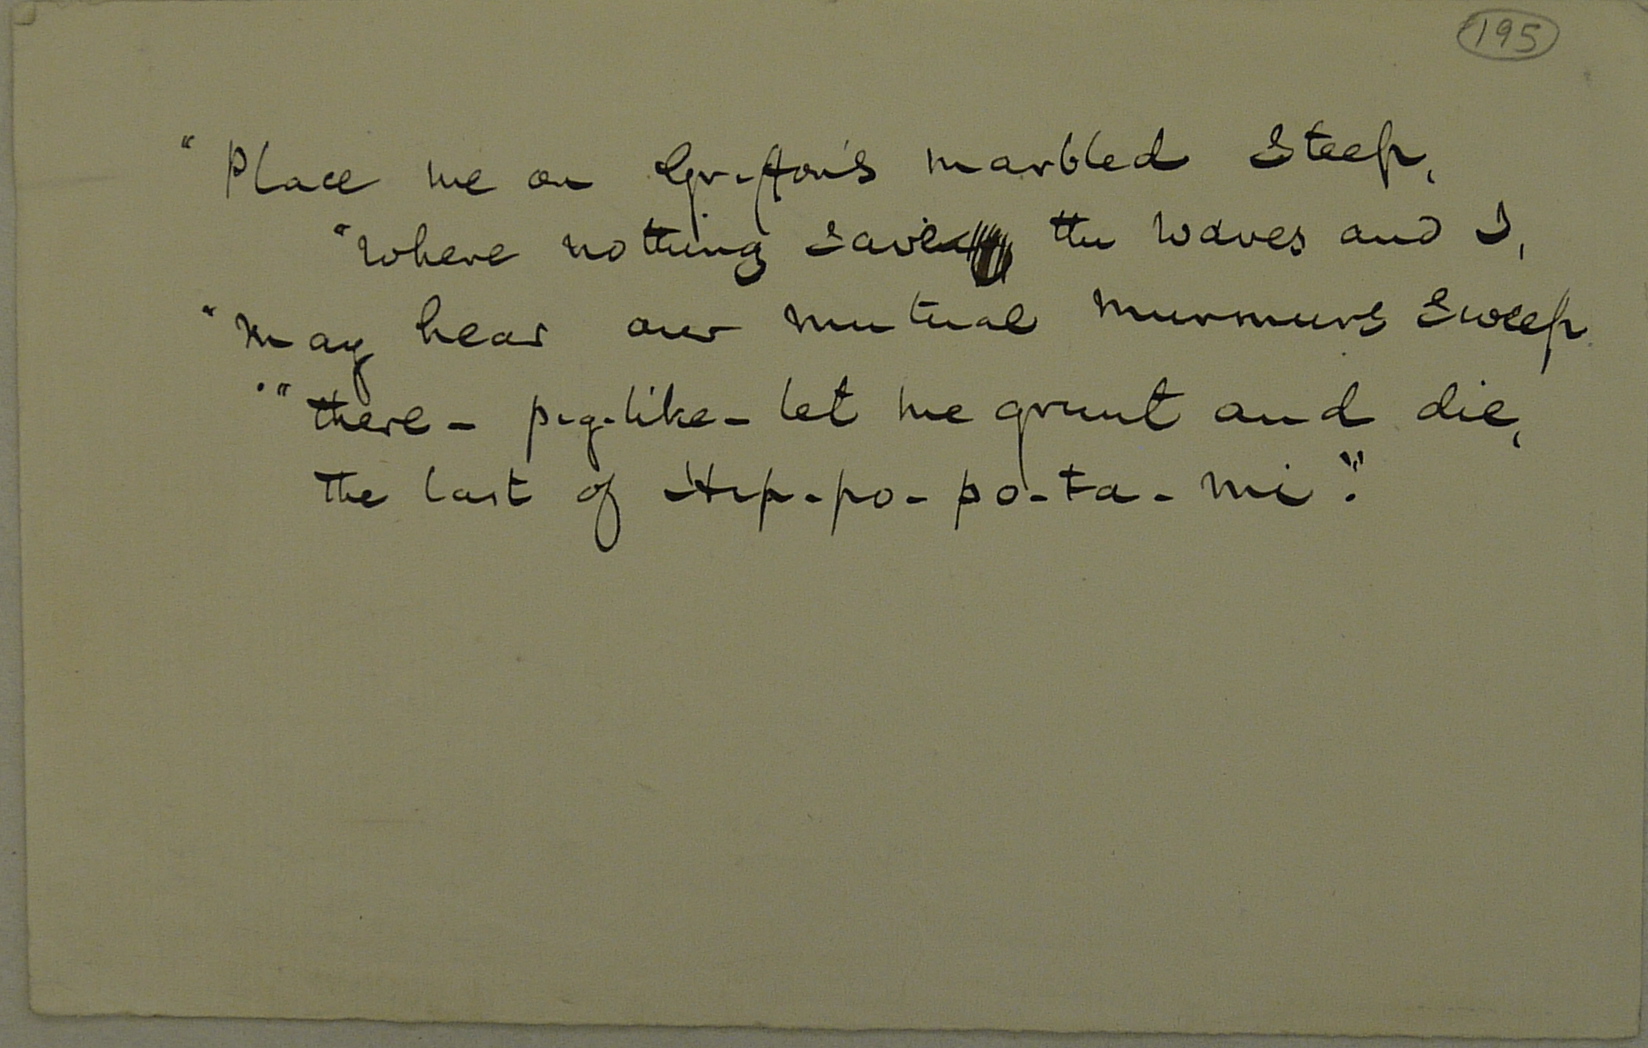 195
"Place me on Grifton's marbled steep,
"Where nothing save the waves and I,
"May hear our mutual murmurs sweep
"there - pig-like - let me grunt and die,
The last of Hip-po-po-ta-mi."